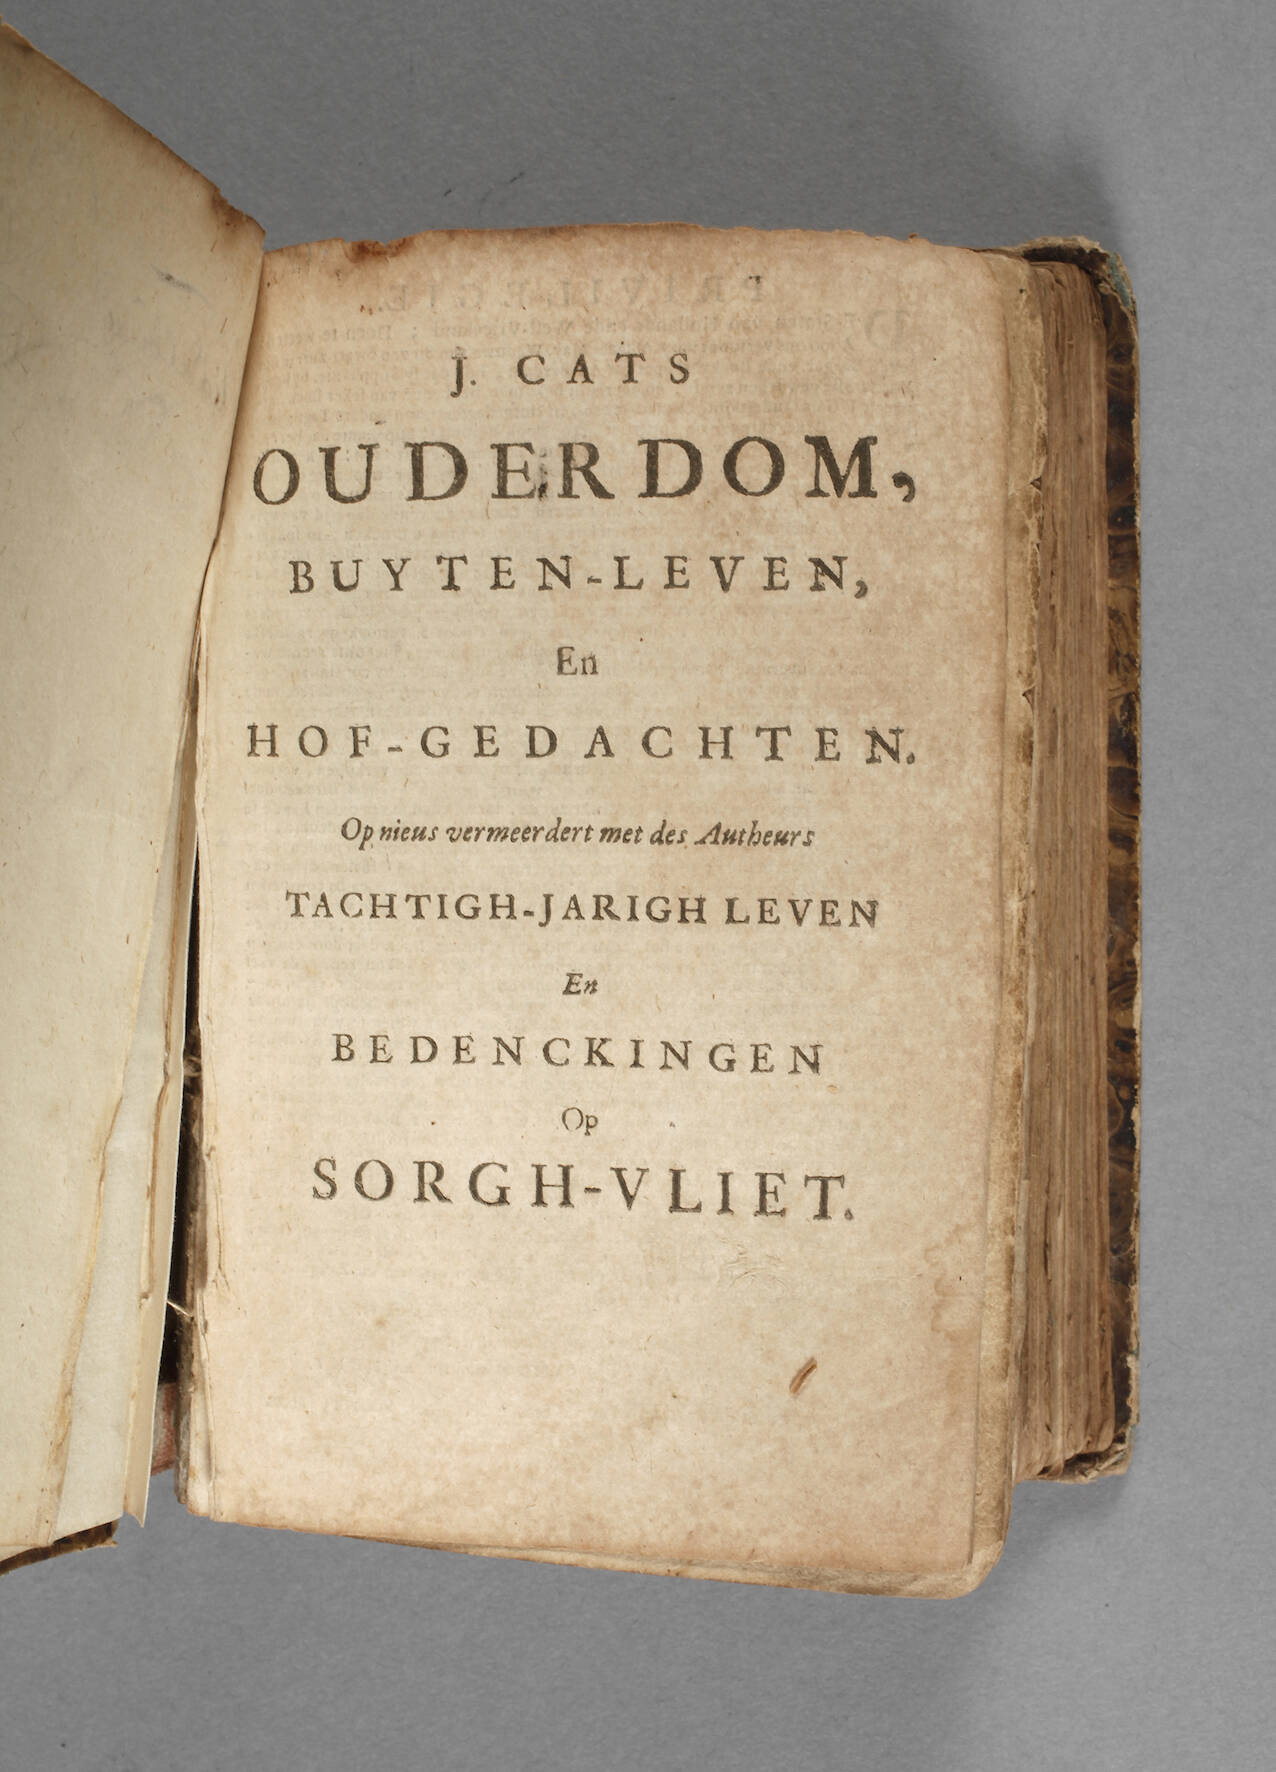 J. CATS
OUDERDOM,
BUYTEN-LEVEN,
En
HOF-GEDACHTEN.
Op nieus vermeerdert met des Autheurs
TACHTIGH-JARIGH LEVEN
En
BEDENCKINGEN
Op
SORGH-VLIET.